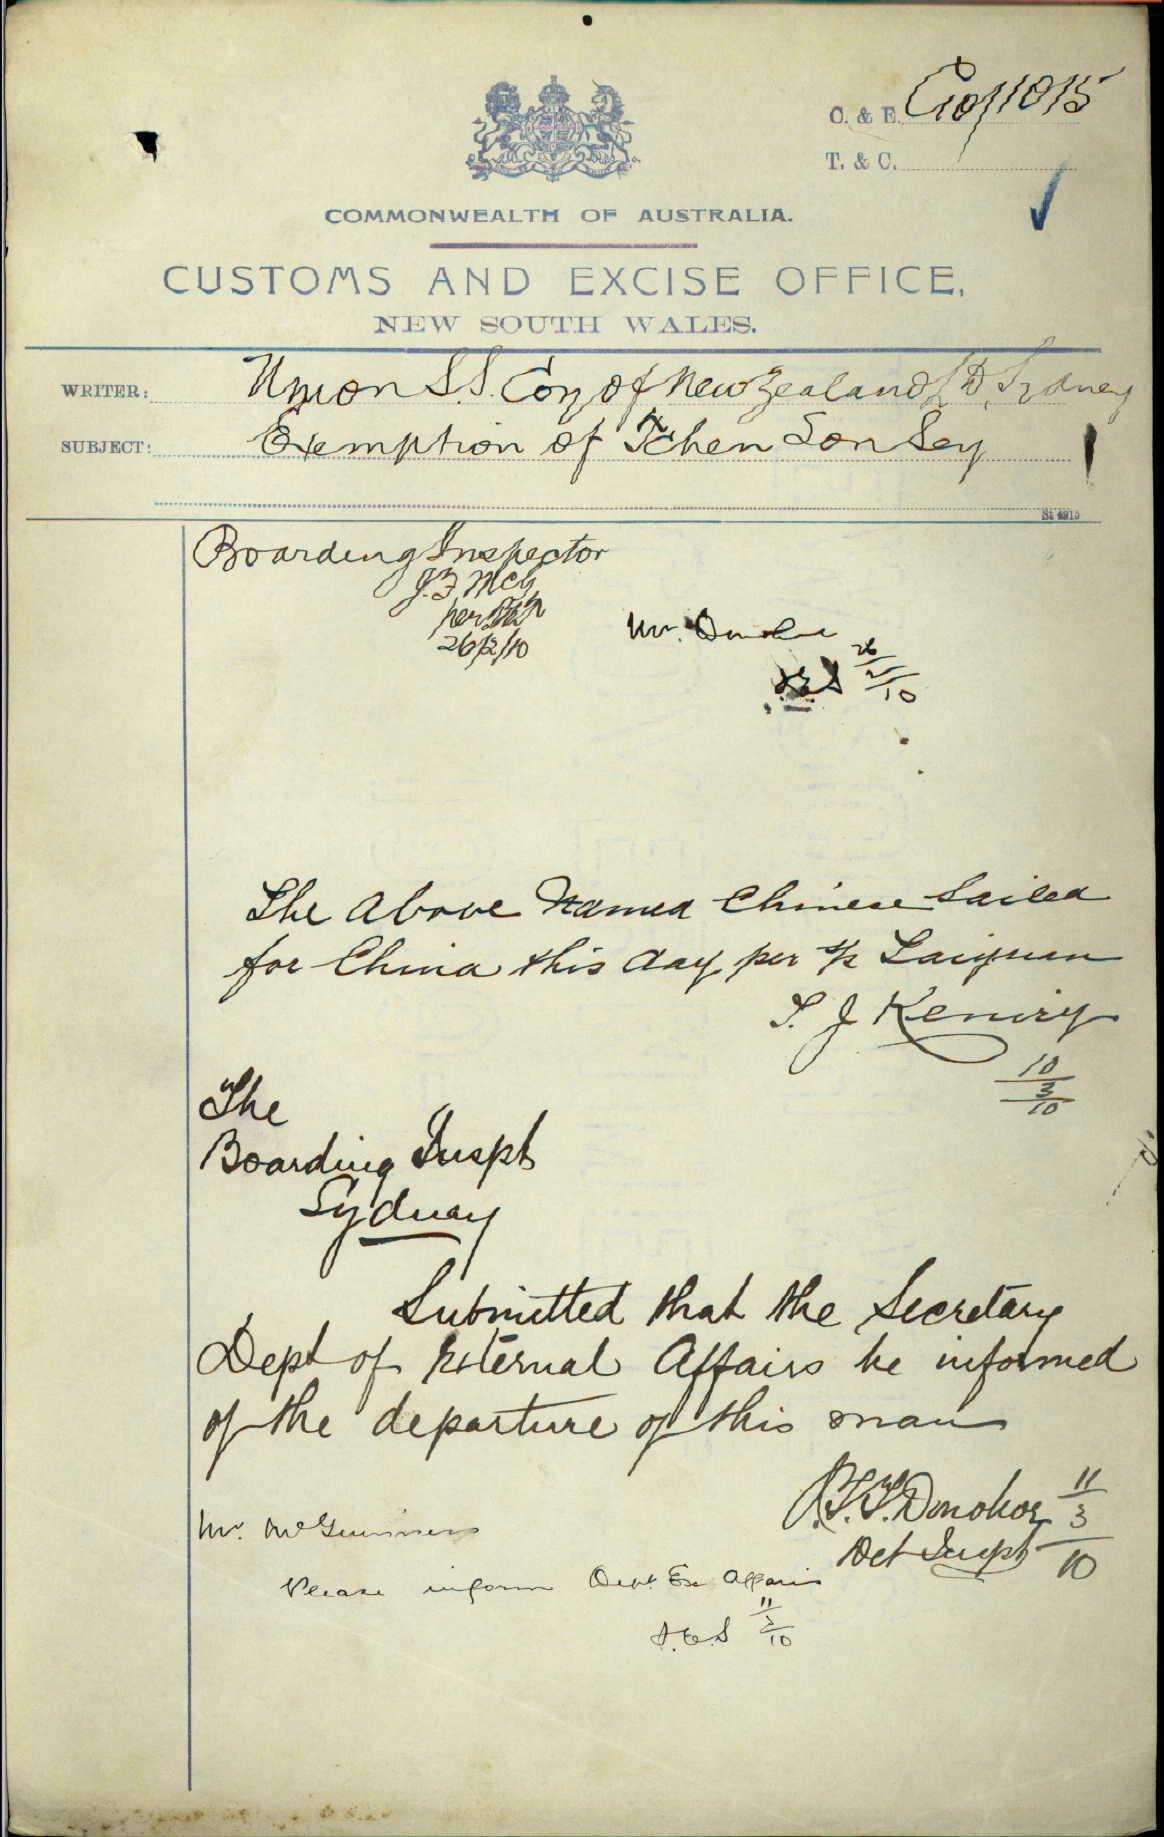 C. & E. C10/1015
T. & C.
COMMONWEALTH OF AUSTRALIA.
CUSTOMS AND EXCISE OFFICE,
NEW SOUTH WALES.
WRITER: Union S.S. Coy of New Zealand Ld, Sydney
SUBJECT: Exemption of Tchen Son Sey
St 4915
Boarding Inspector
J.F. McG
per
26/2/10
Mr. Donohoe
26/2/10
The above Named Chinese Sailed
for China this day per s/s Taiyuan
T. J. Keniry
10/3/10
The
Boarding Inspt
Sydney
Submitted that the Secretary
Dept of External Affairs be informed
of the departure of this man
J.T.T. Donohoe 11/3/10
Det Inspt
Mr. McGuinness
Please inform Dept Ex Affairs
11/3/10